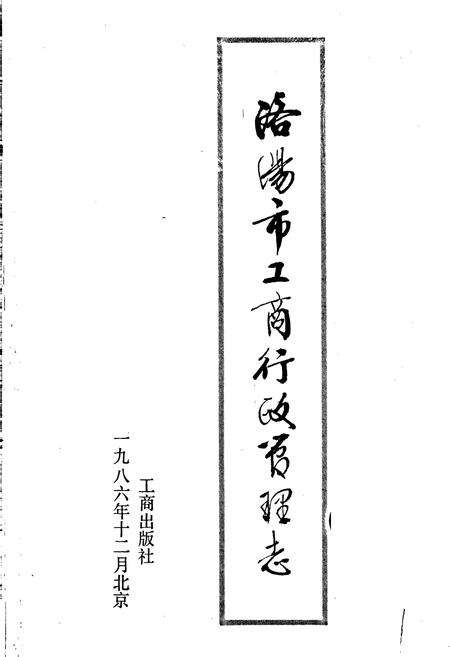 洛阳市工商行政管理志
工商出版社
一九八六年十二月北京